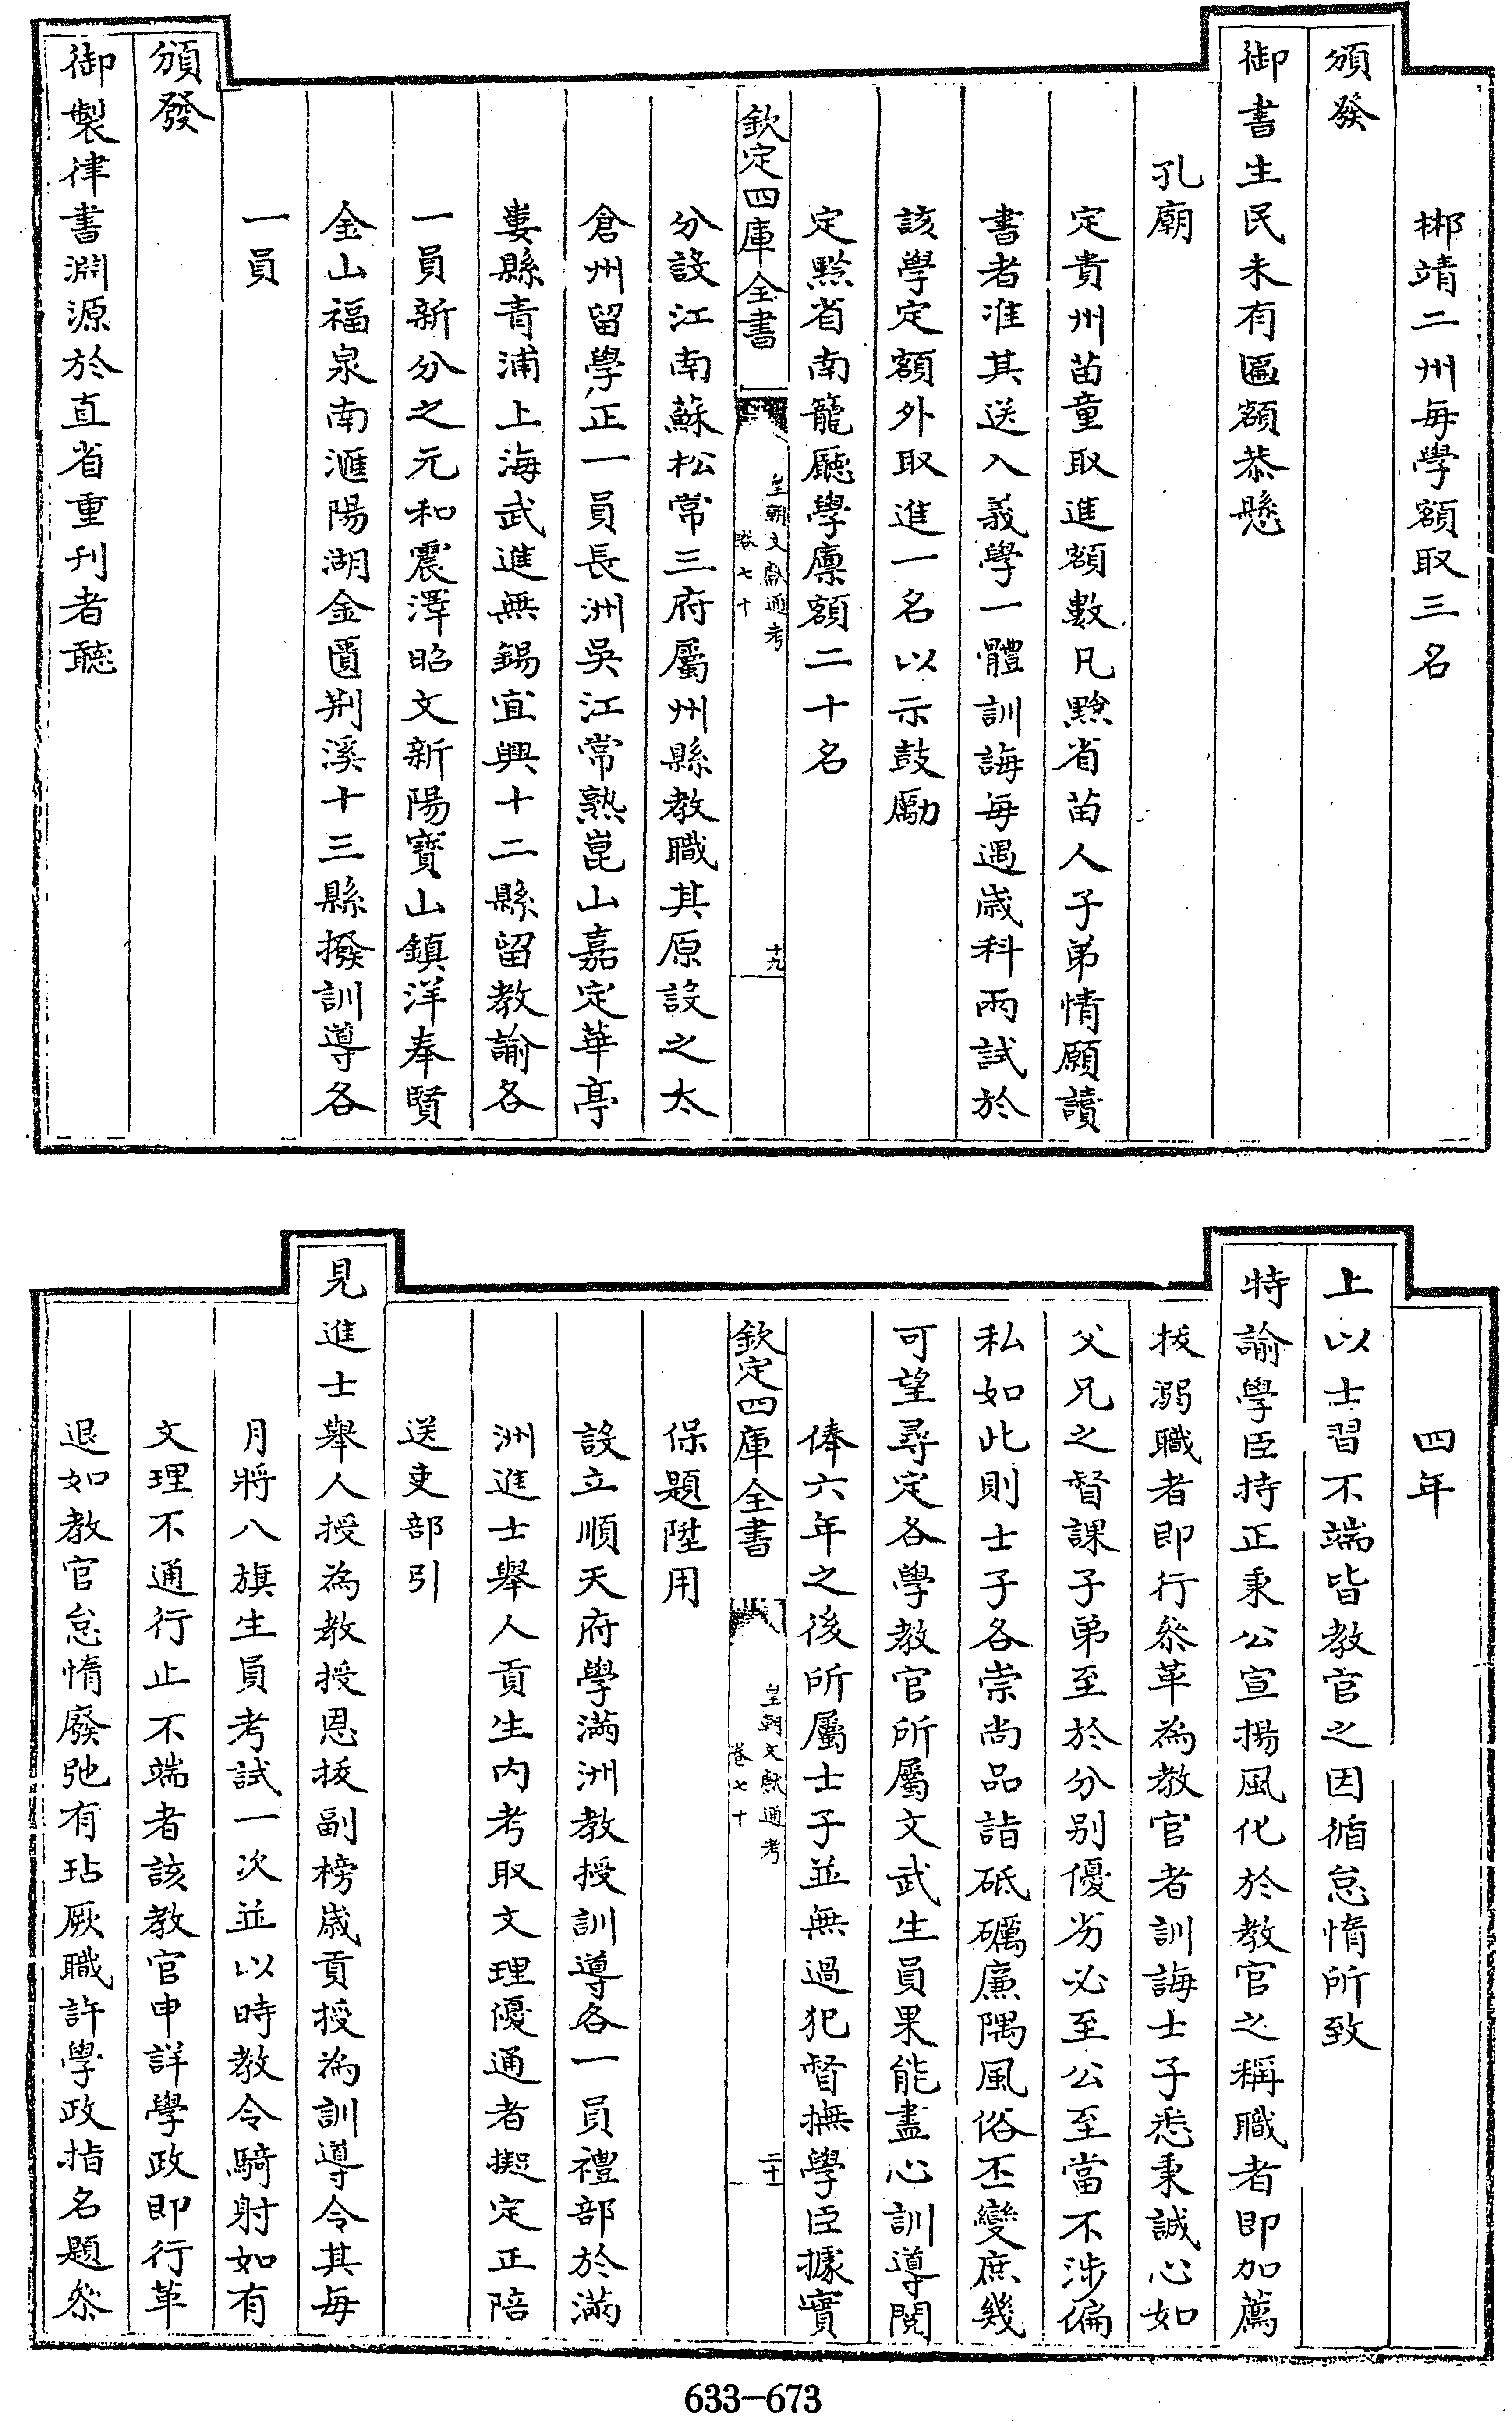 郴靖二州每學額取三名
頒發
御書生民未有匾額恭懸
孔廟
定貴州苗童取進額數凡黔省苗人子弟情願讀
書者准其送入義學一體訓誨每遇歲科兩試於
該學定額外取進一名以示鼓勵
定黔省南籠廳學廩額二十名
欽定四庫全書
皇朝文獻通考
卷七十
十九
分設江南蘇松常三府屬州縣教職其原設之太
倉州留學正一員長洲吳江常熟崑山嘉定華亭
婁縣青浦上海武進無錫宜興十二縣留教諭各
一員新分之元和震澤昭文新陽寶山鎮洋奉賢
金山福泉南滙陽湖金匱荆溪十三縣撥訓導各
一員
頒發
御製律書淵源於直省重刊者聽
四年
上以士習不端皆教官之因循怠惰所致
特諭學臣持正秉公宣揚風化於教官之稱職者即加薦
拔溺職者即行叅革為教官者訓誨士子悉秉誠心如
父兄之督課子弟至於分别優劣必至公至當不涉偏
私如此則士子各崇尚品詣砥礪廉隅風俗丕變庶幾
可望尋定各學教官所屬文武生員果能盡心訓導閱
俸六年之後所屬士子並無過犯督撫學臣據實
欽定四庫全書
皇朝文獻通考
卷七十
二十
保題陞用
設立順天府學滿洲教授訓導各一員禮部於滿
洲進士舉人貢生内考取文理優通者擬定正陪
送吏部引
見進士舉人授為教授恩拔副榜歲貢授為訓導令其每
月將八旗生員考試一次並以時教令騎射如有
文理不通行止不端者該教官申詳學政即行革
退如教官怠惰廢弛有玷厥職許學政指名題叅
633-673